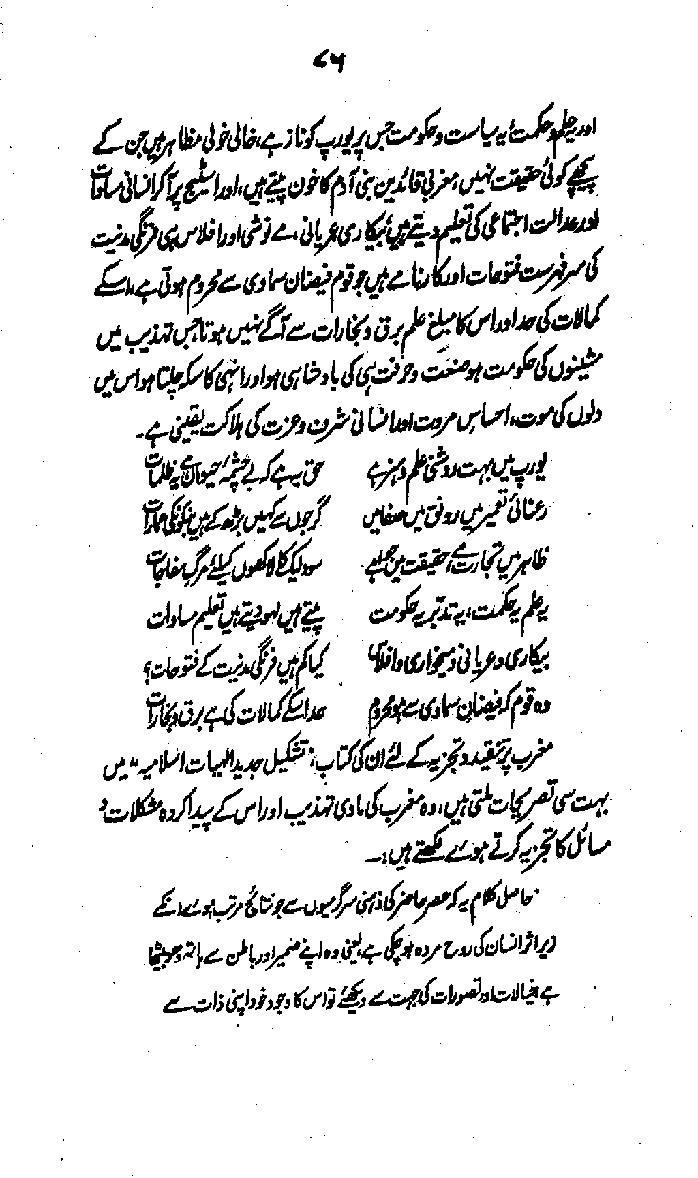 ۷۶
اور یہ علم و حکمت یہ سیاست و حکومت جس پر یورپ کو ناز ہے، خالی خولی مظاہر ہیں جن کے
پیچھے کوئی حقیقت نہیں، مغربی قائدین بنی آدم کا خون پیتے ہیں، اور اسٹیج پر آ کر انسانی مساوات
اور عدالت اجتماعی کی تعلیم دیتے ہیں، بیکاری عریانی، مے نوشی اور افلاس ہی فرنگی مدنیت
کی سر فہرست فتوحات اور کارنامے ہیں جو قوم فیضان سماوی سے محروم ہوتی ہے، اسکے
کمالات کی حد اور اس کا مبلغ علم برق و بخارات سے آگے نہیں ہوتا جس تہذیب میں
مشینوں کی حکومت ہو صنعت و حرفت ہی کی بادشاہی ہو اور انہی کا سکہ چلتا ہو اس میں
دلوں کی موت، احساس مروت اور انسانی شرف و عزت کی ہلاکت یقینی ہے۔
یورپ میں بہت روشنی علم و ہنر ہے حق یہ ہے کہ بے چشمہ حیواں ہے یہ ظلمات
رعنائی تعمیر میں رونق میں صفا میں گرجوں سے کہیں بڑھ کے ہیں بنکوں کی عمارات
ظاہر میں تجارت ہے، حقیقت میں جوا ہے سود ایک کا لاکھوں کیلئے مرگ مفاجات
یہ علم یہ حکمت، یہ تدبر یہ حکومت پیتے ہیں لہو دیتے ہیں تعلیم مساوات
بیکاری و عریانی و میخواری و افلاس کیا کم ہیں فرنگی مدنیت کے فتوحات؟
وہ قوم کہ فیضان سماوی سے ہو محروم حد اسکے کمالات کی ہے برق و بخارات
مغرب پر تنقید و تجزیہ کے لئے ان کی کتاب: تشکیل جدید الہیات اسلامیہ" میں
بہت سی تصریحات ملتی ہیں، وہ مغرب کی مادی تہذیب اور اس کے پیدا کردہ مشکلات و
مسائل کا تجزیہ کرتے ہوئے لکھتے ہیں:۔
حاصل کلام یہ کہ عصر حاضر کی ذہنی سرگرمیوں سے جو نتائج مرتب ہوئے، انکے
زیر اثر انسان کی روح مردہ ہو چکی ہے، یعنی وہ اپنے ضمیر اور باطن سے ہاتھ دھو بیٹھا
ہے، خیالات اور تصورات کی جہت سے دیکھئے تو اس کا وجود خود اپنی ذات سے